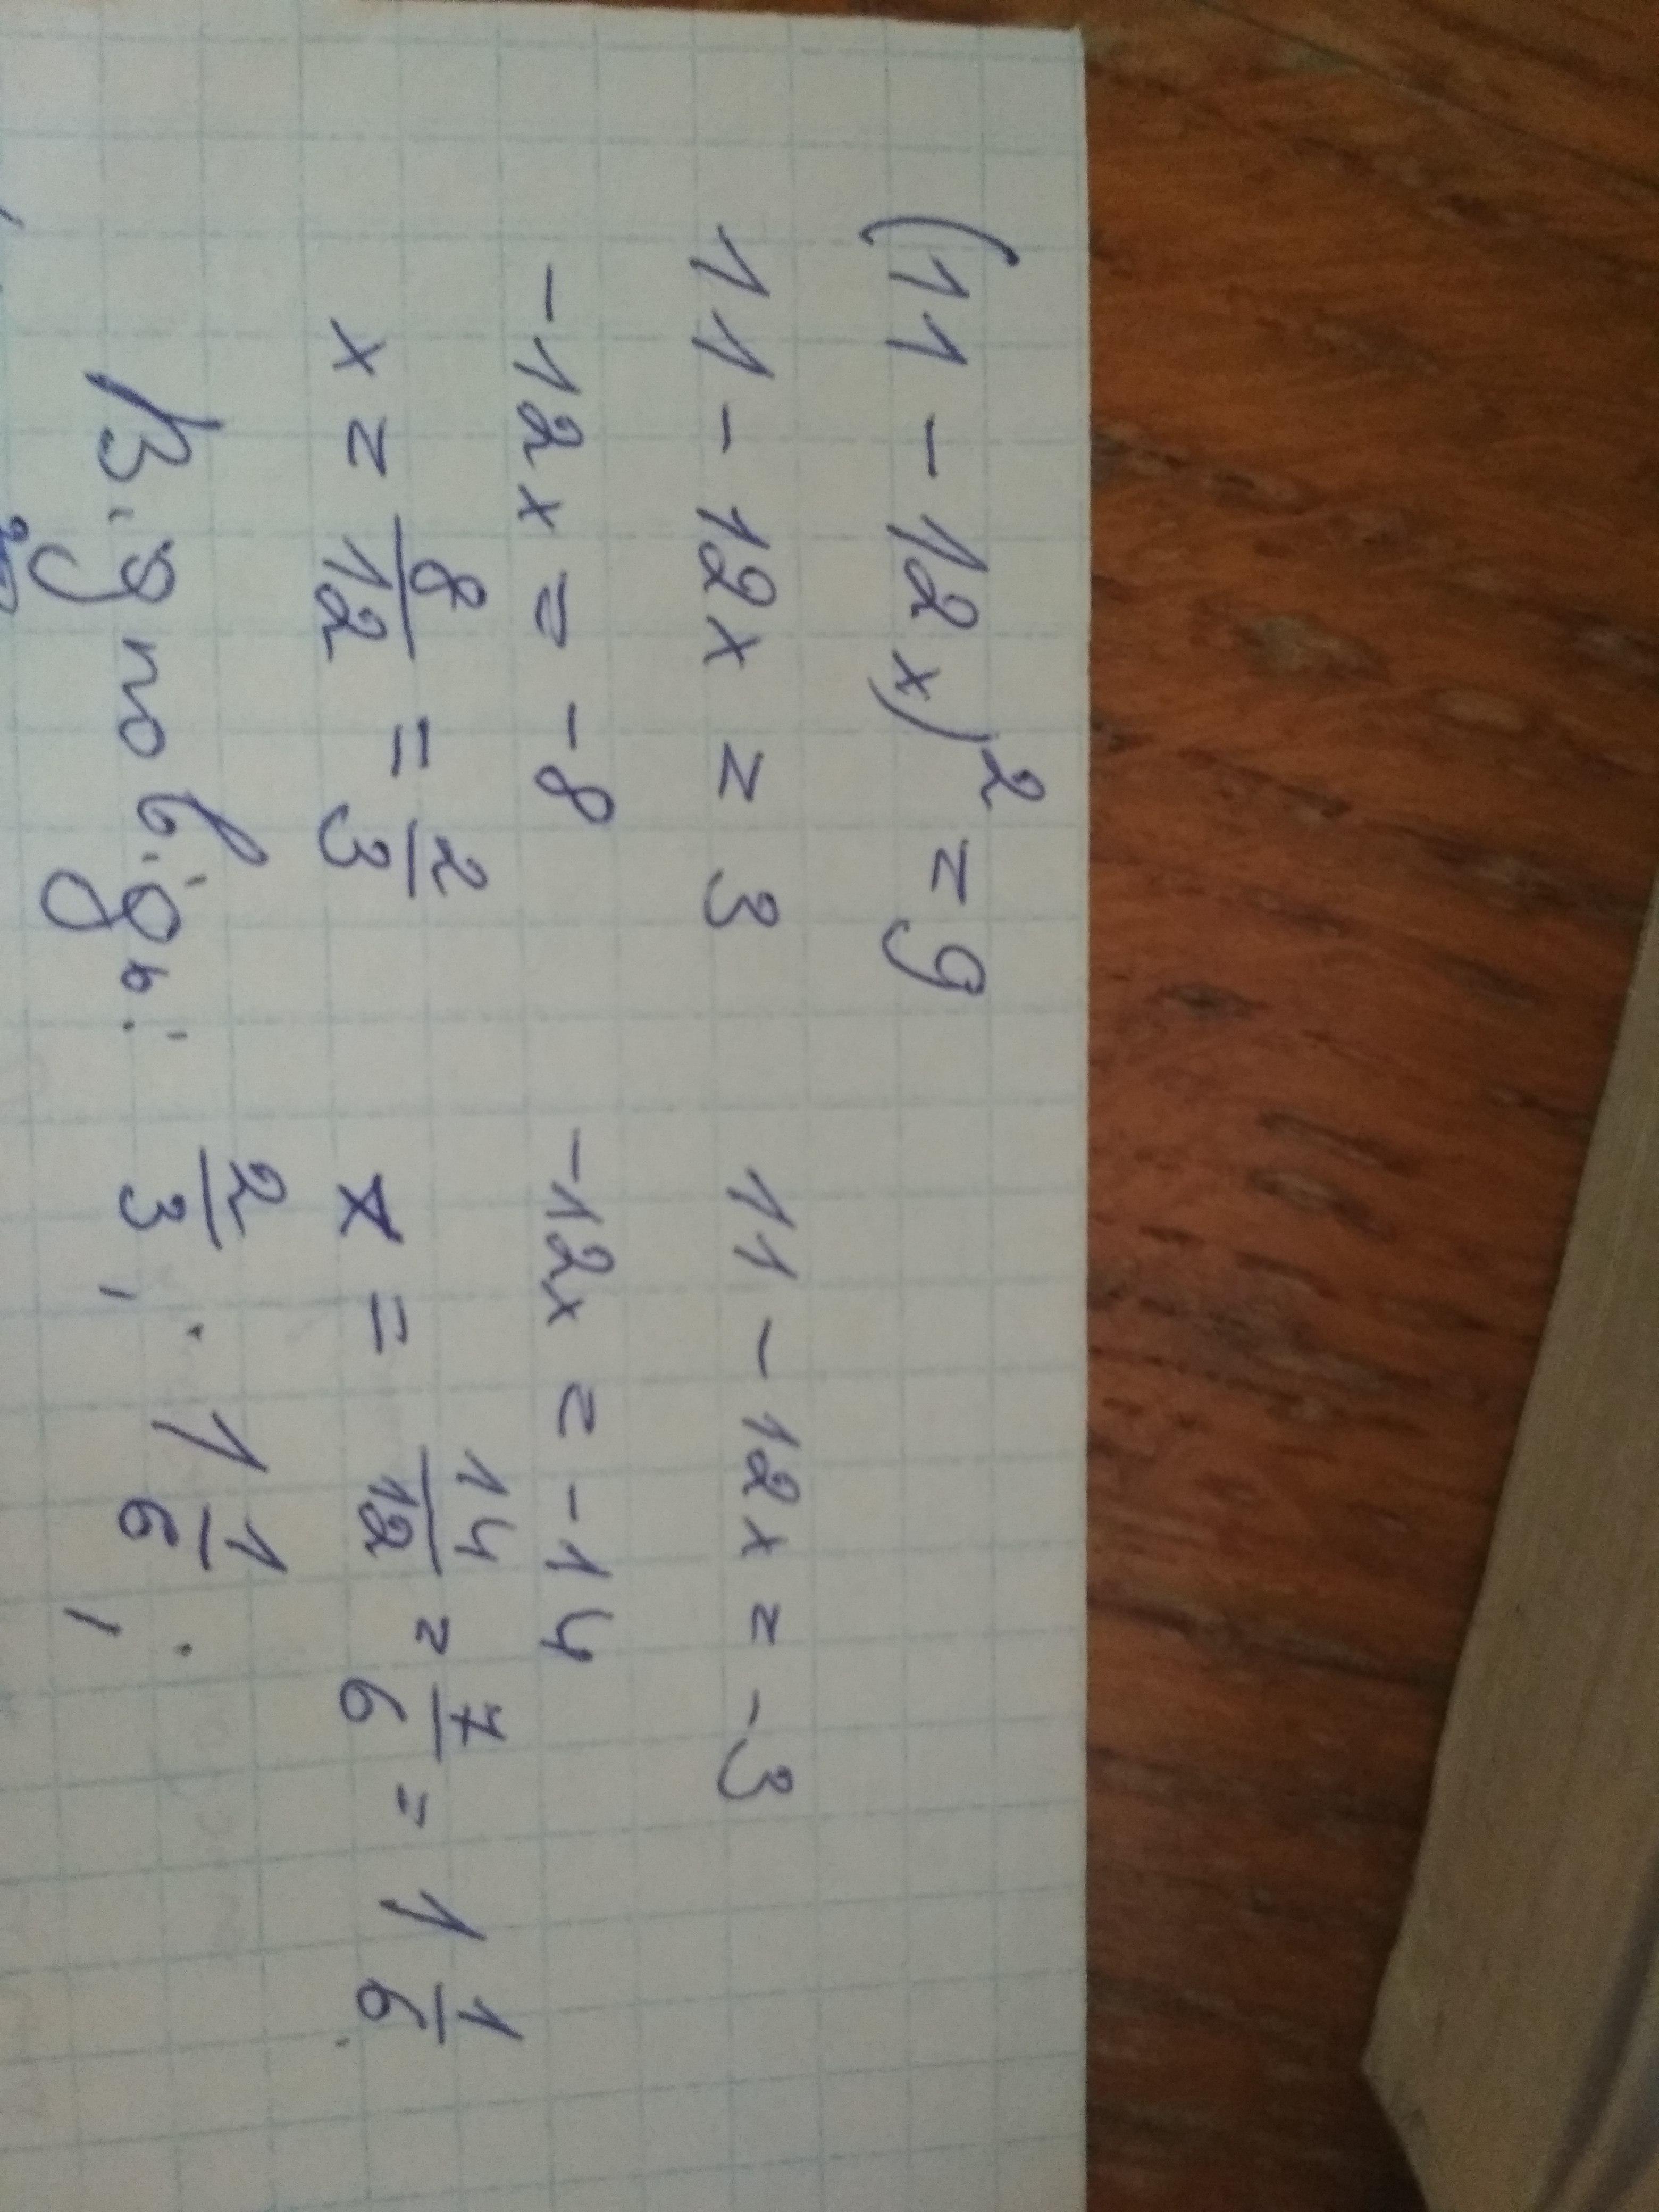 (11 - 12x)² = 9
11 - 12x = 3    11 - 12x = -3
-12x = -8    -12x = -14
x = 8/12 = 2/3    x = 14/12 = 7/6 = 1 1/6
Відповідь: 2/3; 1 1/6;